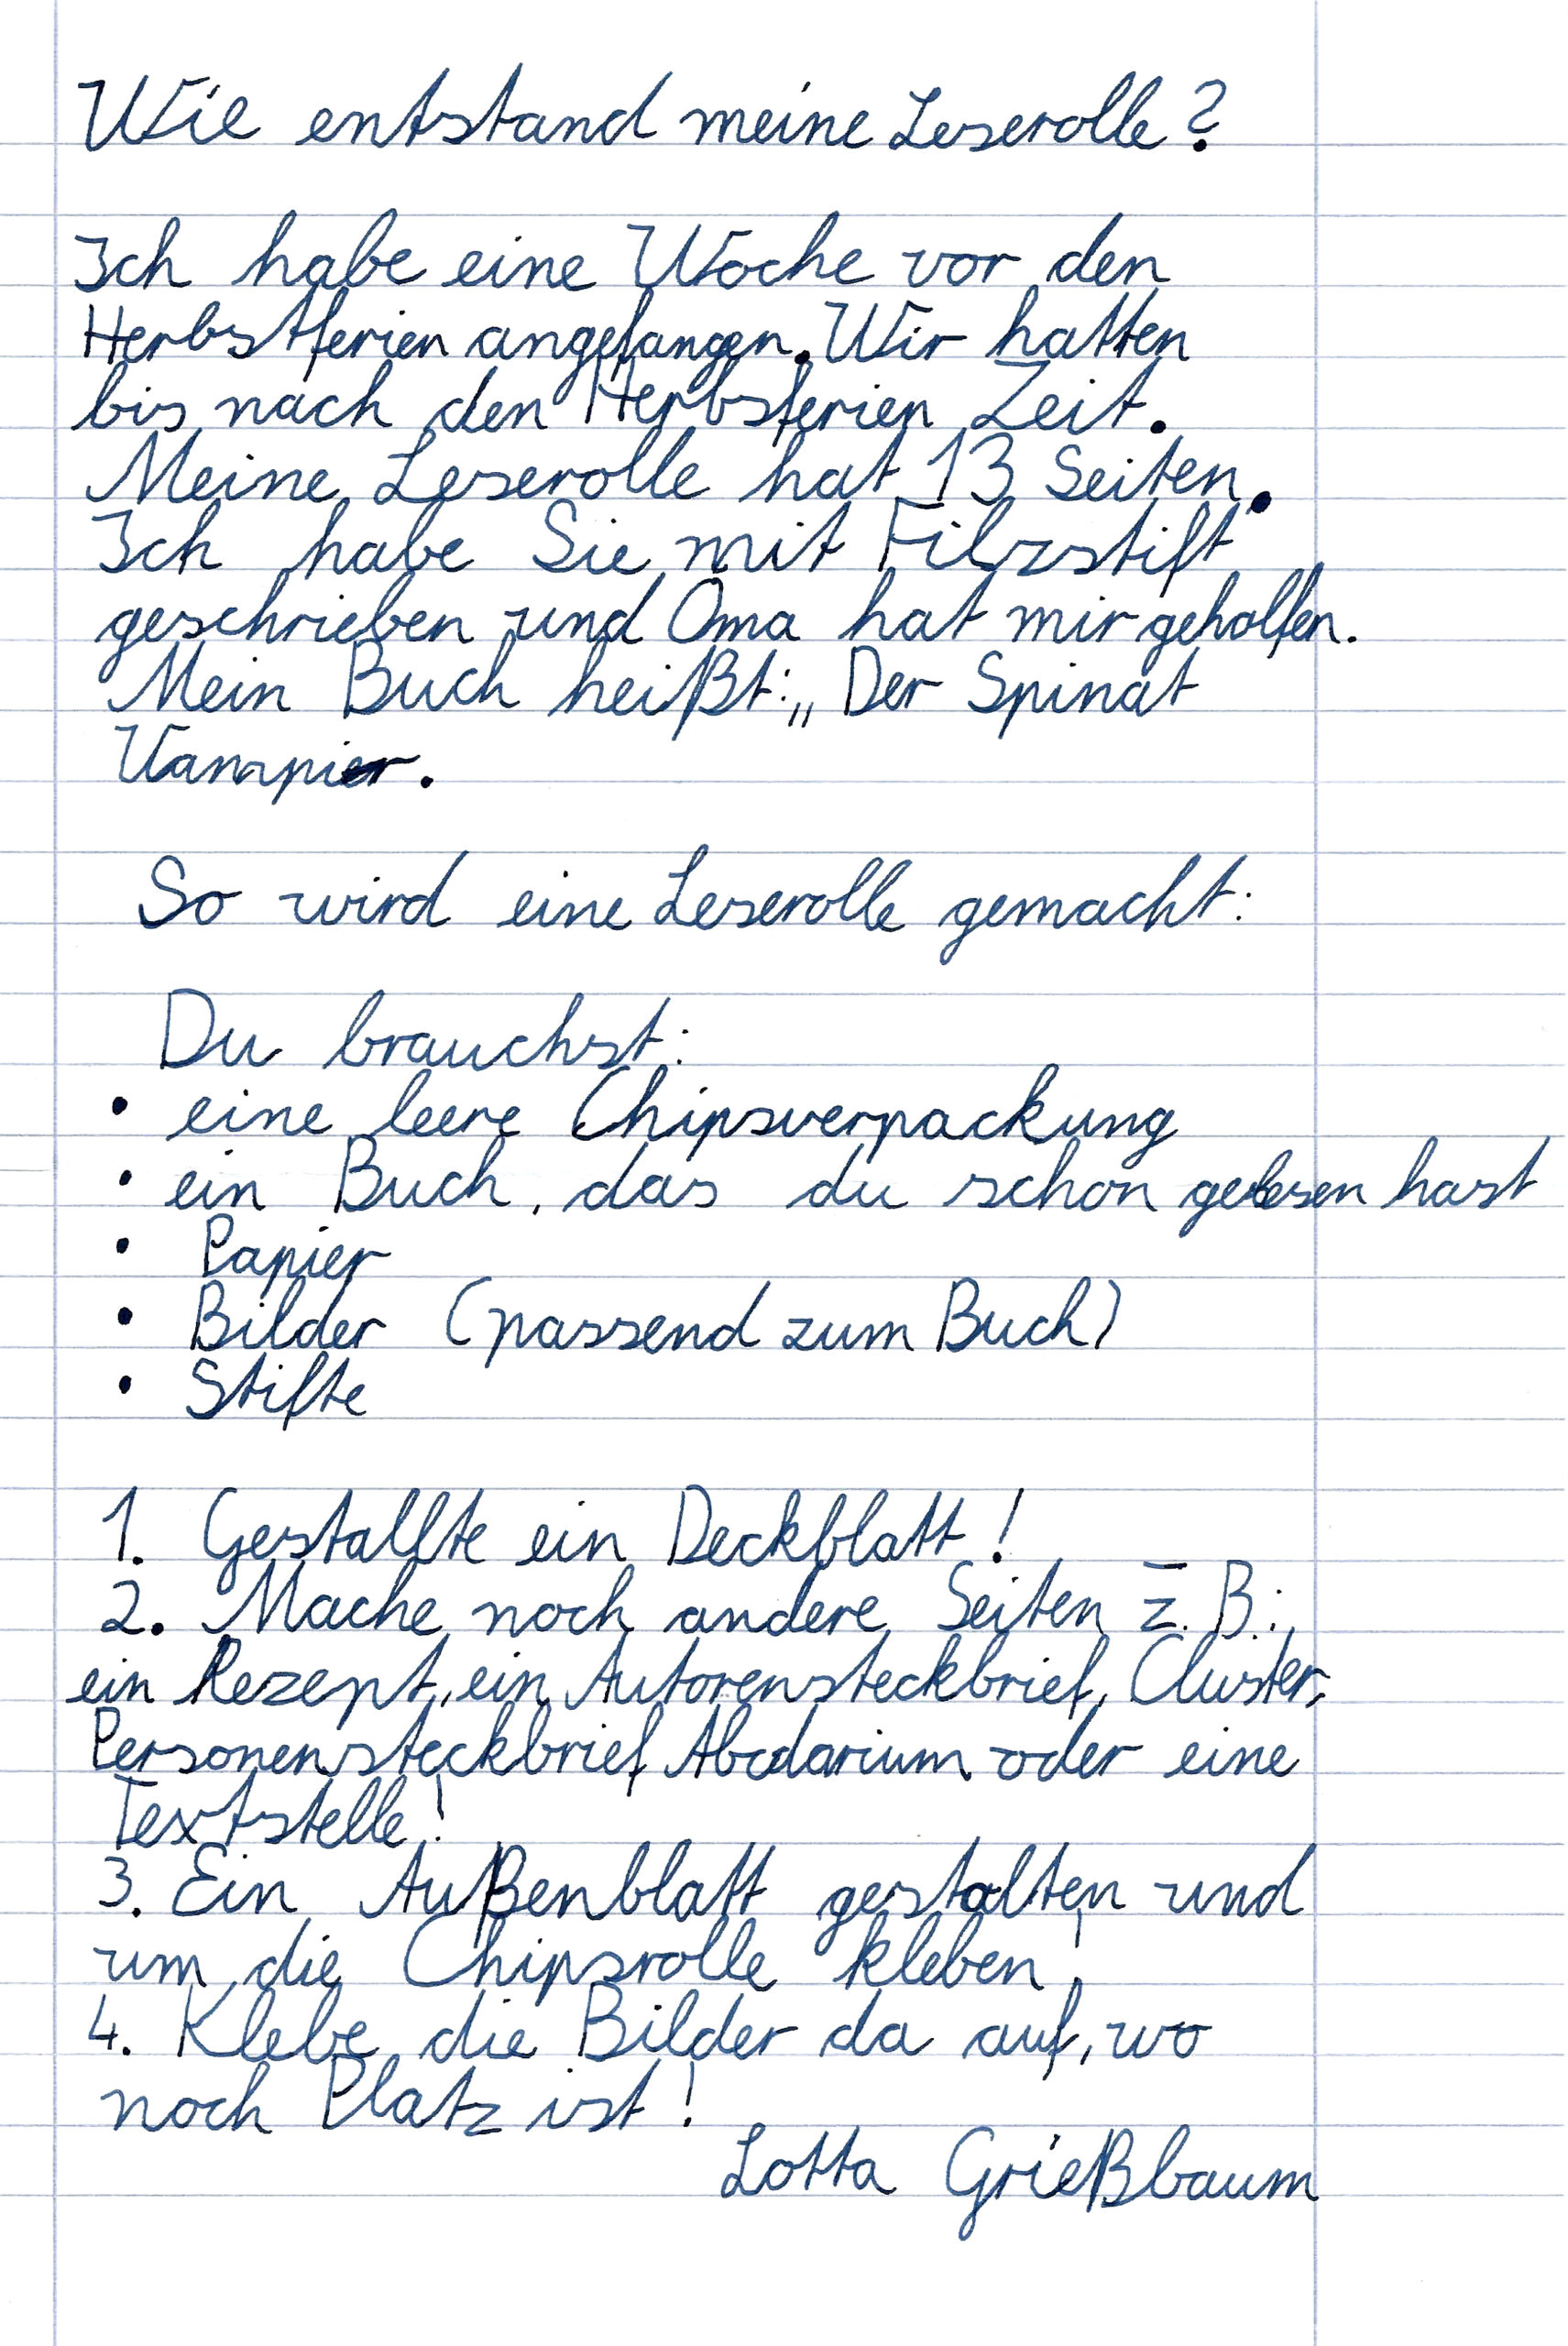 Wie entstand meine Leserolle?
Ich habe eine Woche vor den
Herbstferien angefangen. Wir hatten
bis nach den Herbsferien Zeit.
Meine Leserolle hat 13 Seiten.
Ich habe Sie mit Filzstift
geschrieben und Oma hat mir geholfen.
Mein Buch heißt: „Der Spinat
Vampier.
So wird eine Leserolle gemacht:
Du brauchst:
• eine leere Chipsverpackung
• ein Buch, das du schon gelesen hast
• Papier
• Bilder (passend zum Buch)
• Stifte
1. Gestallte ein Deckblatt!
2. Mache noch andere Seiten z. B.:
ein Rezept, ein Autorensteckbrief, Cluster,
Personensteckbrief Abcdarium oder eine
Textstelle!
3. Ein Außenblatt gestalten und
um die Chipsrolle kleben!
4. Klebe die Bilder da auf, wo
noch Platz ist!
Lotta Grießbaum